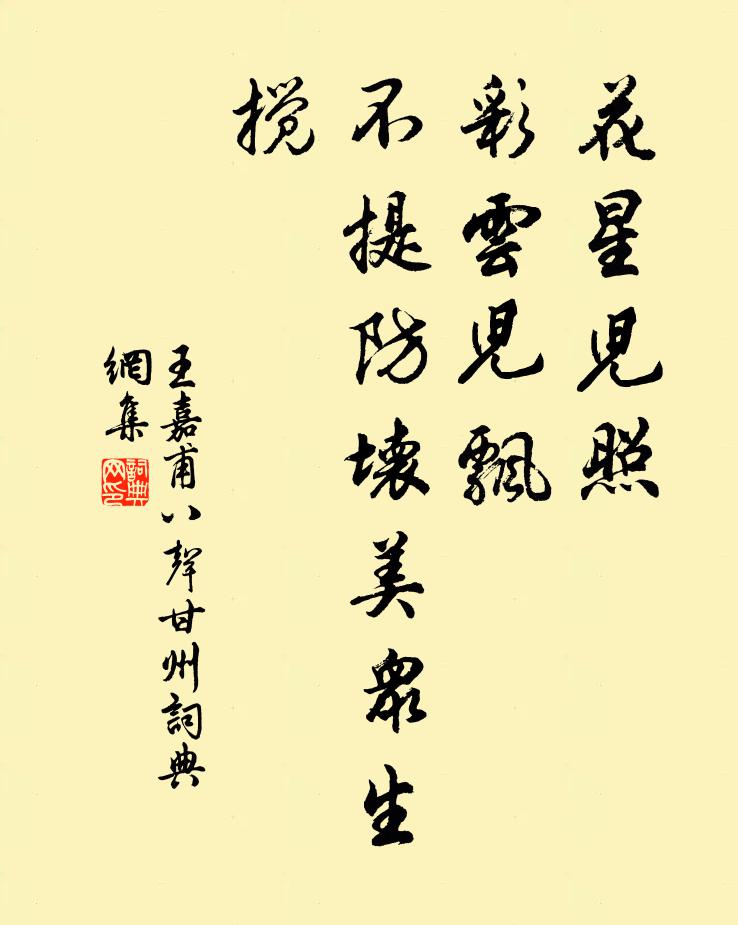 花星兒照
彩雲兒飄
不提防壞美眾生
攪
王嘉甫八聲甘州詞典
網集
詞典
网印